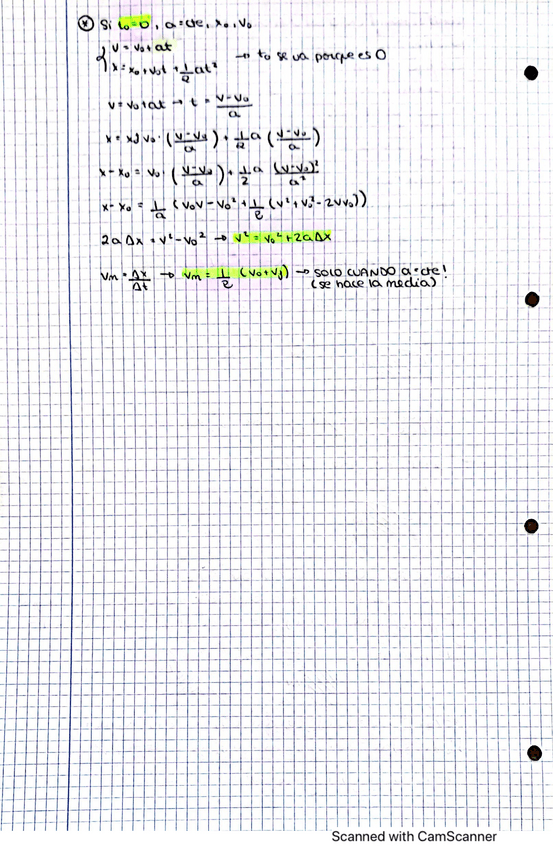 * Si t₀=0, a=cte, x₀, v₀
{ v = v₀+at
x = x₀+v₀t+1/2 at² → t₀ se va porque es 0
v = v₀+at → t = (v-v₀)/a
x = x₀ v₀·((v-v₀)/a) + 1/2 a ((v-v₀)/a)
x-x₀ = v₀·((v-v₀)/a) + 1/2 a (v-v₀)²/a²
x-x₀ = 1/a (v₀v-v₀²+1/2 (v²+v₀²-2vv₀))
2aΔx = v²-v₀² → v² = v₀²+2aΔx
vm = Δx/Δt → vm = 1/2 (v₀+vf) → SOLO CUANDO a=cte!
(se hace la media)
Scanned with CamScanner